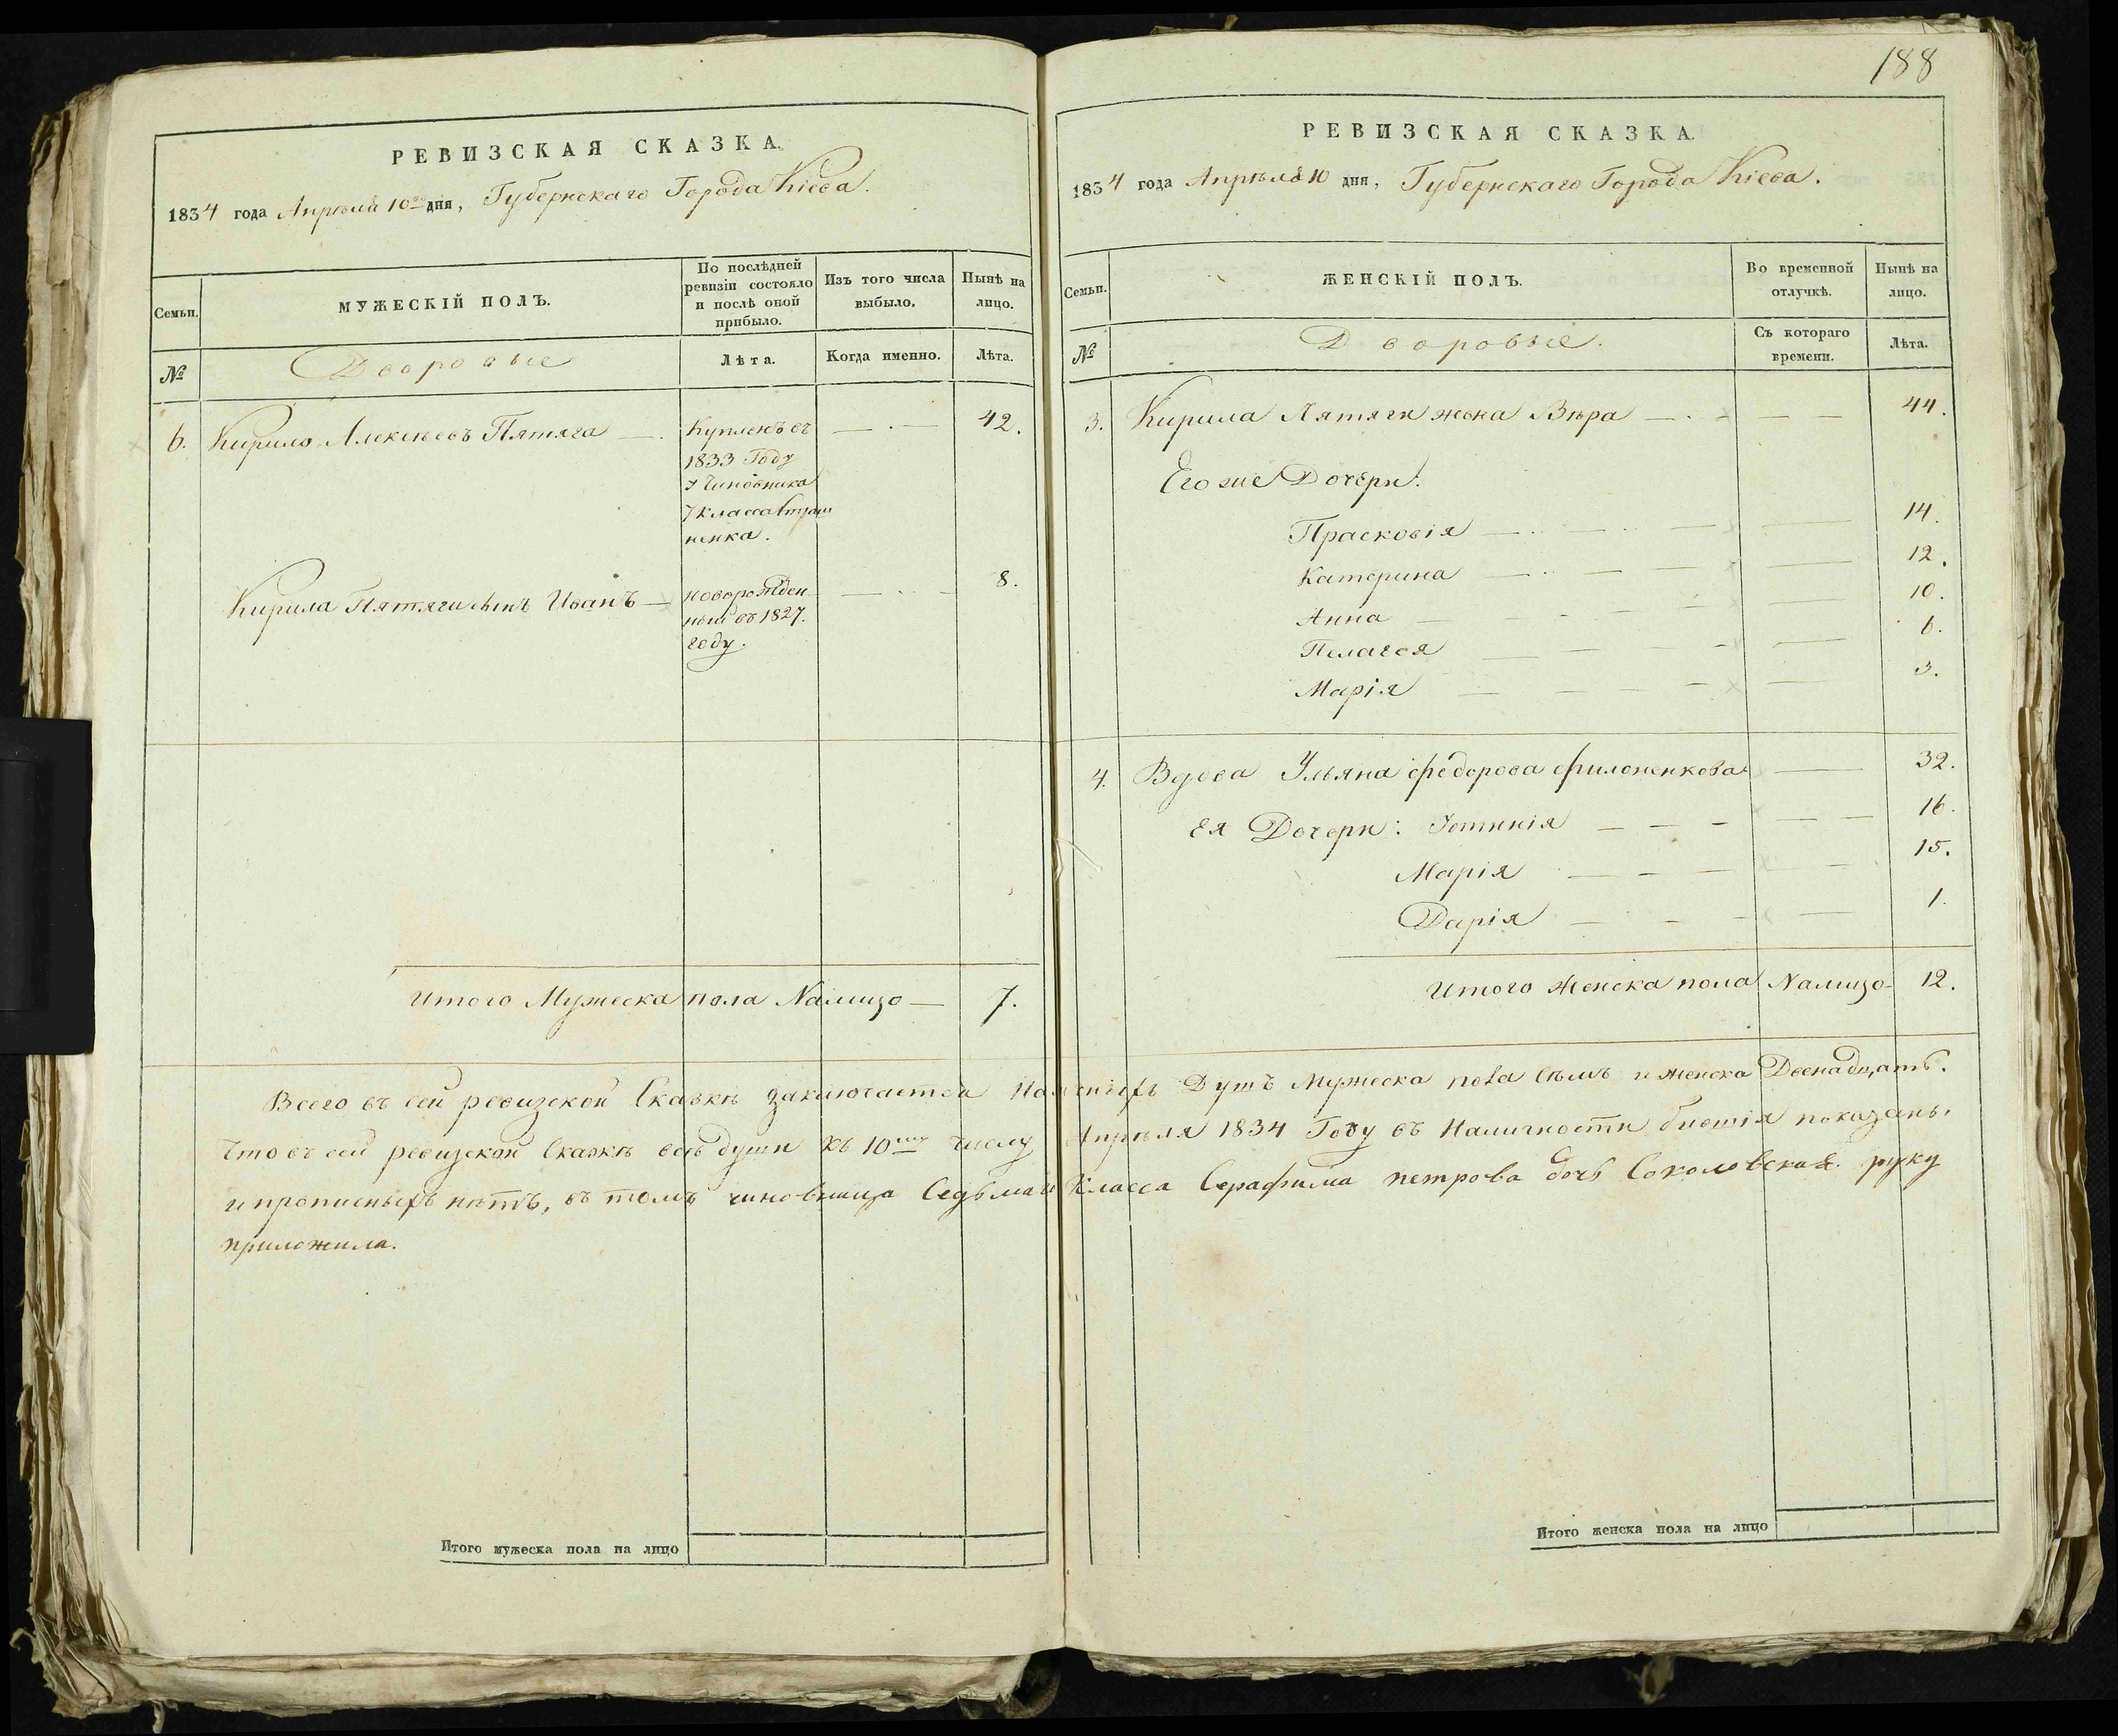 188
РЕВИЗСКАЯ СКАЗКА.
1834 года Апрѣля 10го дня, Губернскаго Города Кіева.
Семьи.
МУЖЕСКІЙ ПОЛЪ.
По послѣдней ревизіи состояло и послѣ оной прибыло.
Изъ того числа выбыло.
Нынѣ на лицо.
№
Дворовые
Лѣта.
Когда именно.
Лѣта.
6. Кирило Алексѣевъ Пятяга — 42.
Купленъ въ
1833 Году
у Чиновника
7 класса
ненка.
Кирила Пятяги сынъ Иванъ — 8.
новорожден
ный въ 1827.
году.
Итого Мужеска пола Налицо — 7.
РЕВИЗСКАЯ СКАЗКА.
1834 года Апрѣля 10 дня, Губернскаго Города Кіева.
Семьи.
ЖЕНСКІЙ ПОЛЪ.
Во временной отлучкѣ.
Нынѣ на лицо.
№
Дворовые.
Съ котораго времени.
Лѣта.
3. Кирила Пятяги жена Вѣра — 44.
Его же Дочери:
Прасковія — 14.
Катерина — 12.
Анна — 10.
Пелагея — 6.
Марія — 3.
4. Вдова Ульяна Федорова Филоненкова — 32.
Ея Дочери: Устинія — 16.
Марія — 15.
Дарія — 1.
Итого Женска пола Налицо — 12.
Всего въ сей ревизской Сказкѣ заключается Наличныхъ Душъ Мужеска пола Семь и женска Двенадцать.
Что въ сей ревизской Сказкѣ всѣ души къ 10му числу Апрѣля 1834 Году въ Наличности показаны.
и прописныхъ нѣтъ, въ томъ чиновница Седьмаго Класса Серафима петрова дочь Соколовская руку
приложила.
Итого мужеска пола на лицо
Итого женска пола на лицо